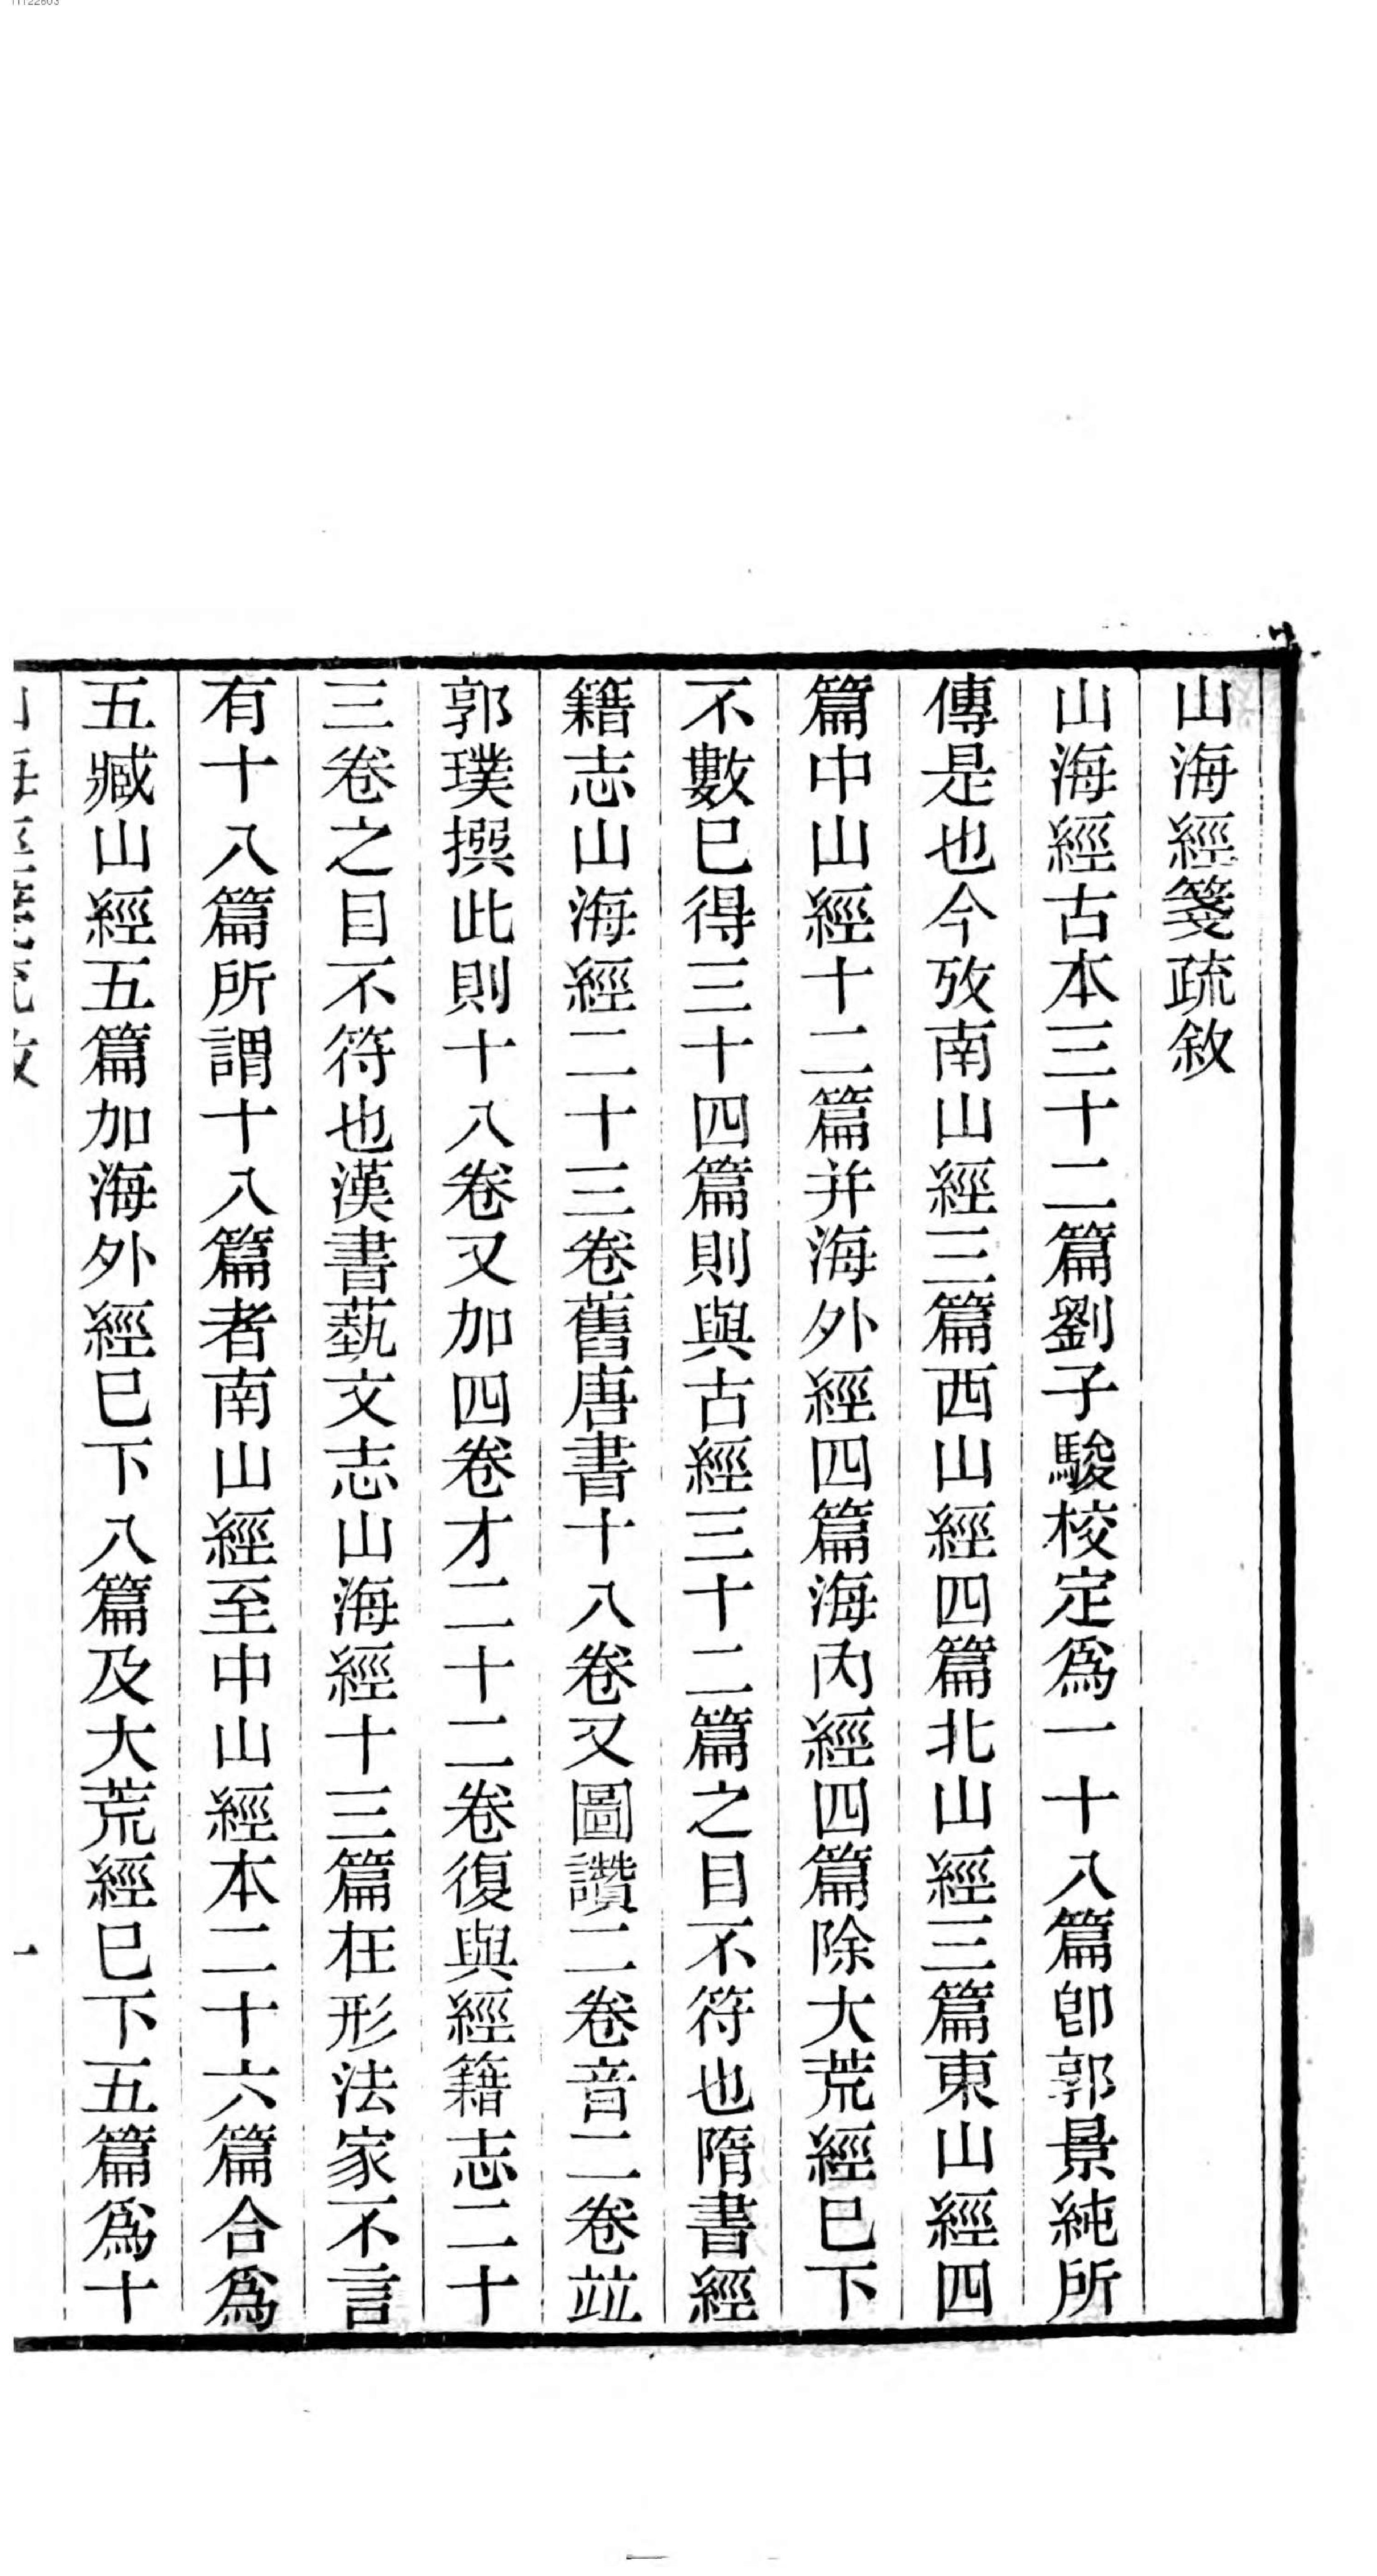 山海經箋疏敘
山海經古本三十二篇劉子駿校定爲一十八篇卽郭景純所
傳是也今攷南山經三篇西山經四篇北山經三篇東山經四
篇中山經十二篇并海外經四篇海內經四篇除大荒經已下
不數已得三十四篇則與古經三十二篇之目不符也隋書經
籍志山海經二十三卷舊唐書十八卷又圖讚二卷音二卷竝
郭璞撰此則十八卷又加四卷才二十二卷復與經籍志二十
三卷之目不符也漢書藝文志山海經十三篇在形法家不言
有十八篇所謂十八篇者南山經至中山經本二十六篇合爲
五臧山經五篇加海外經已下八篇及大荒經已下五篇爲十